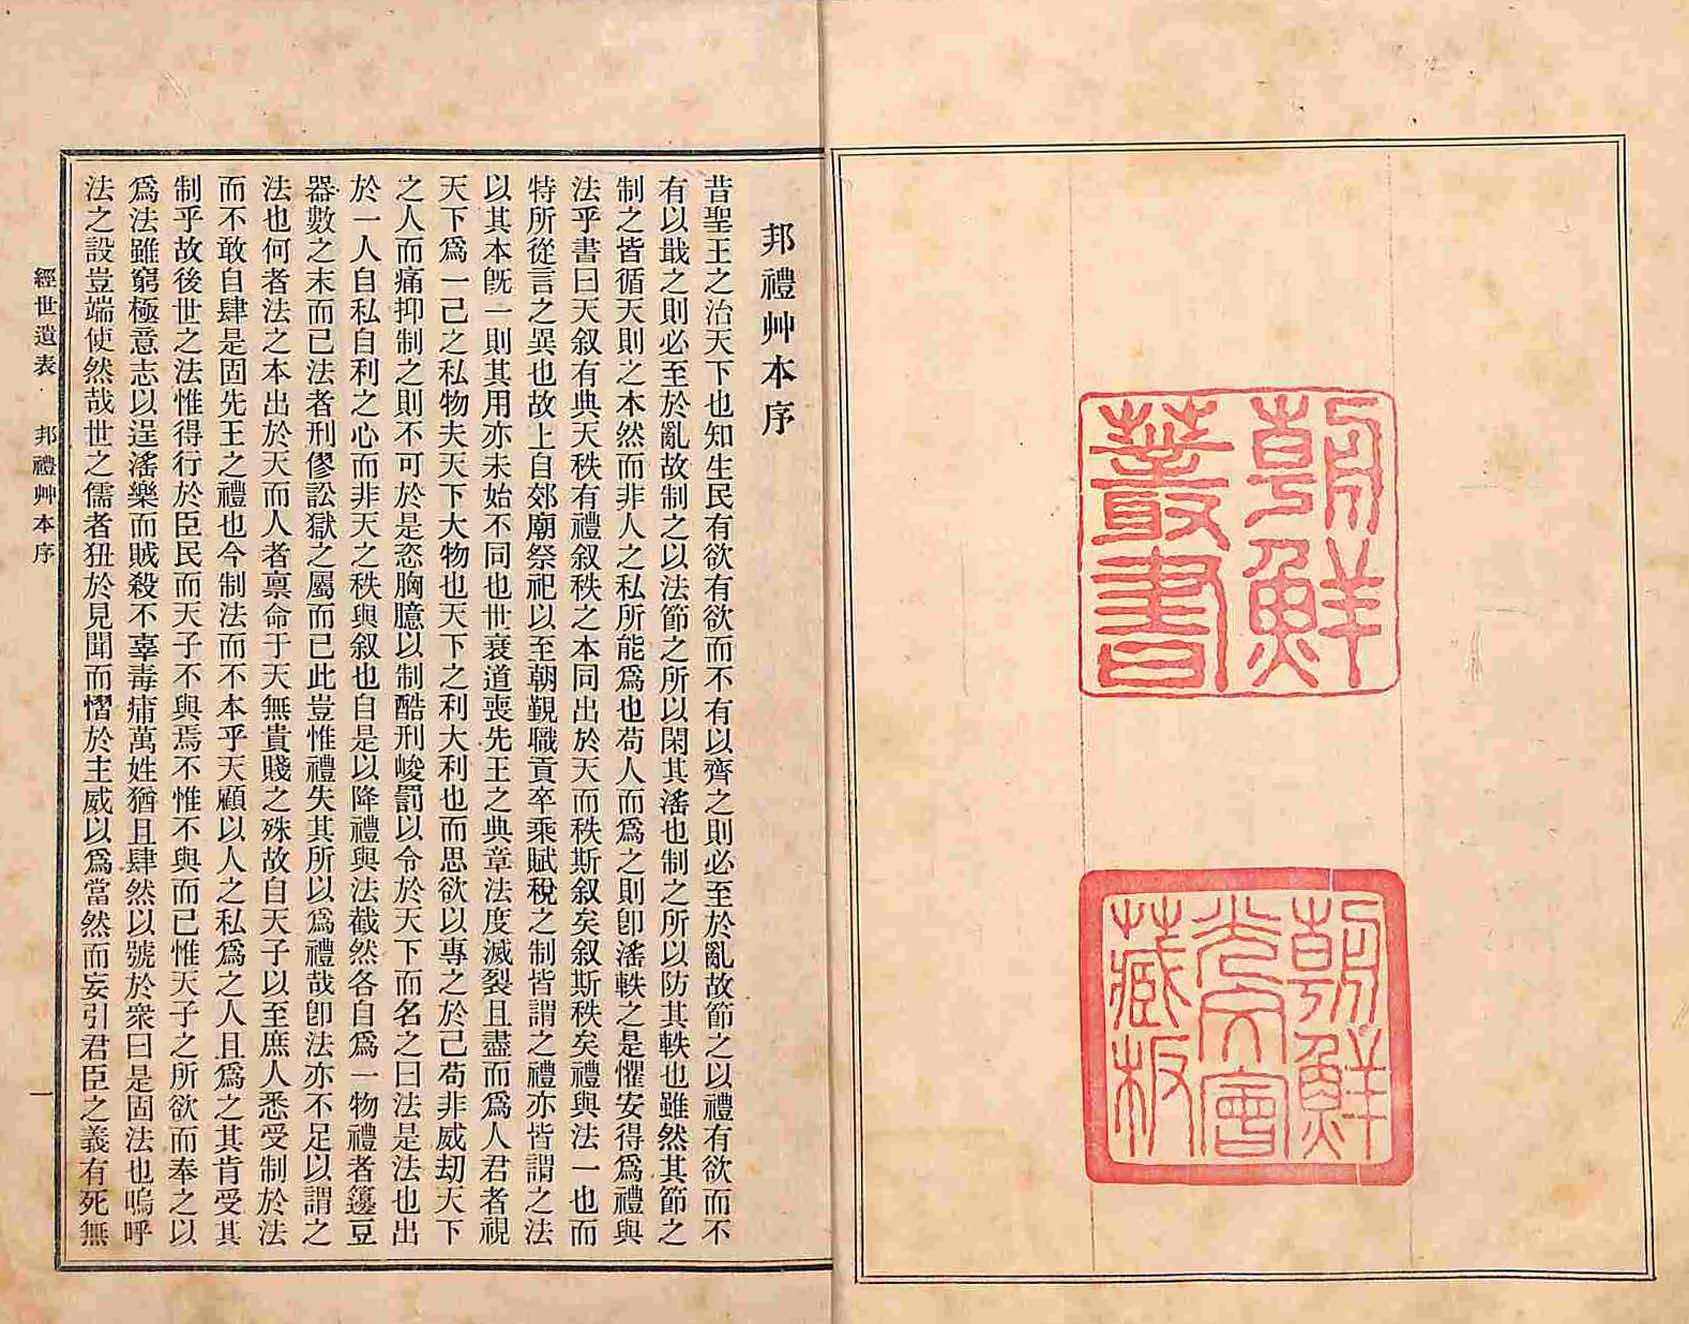 朝鮮
叢書
朝鮮
光文會
藏板
邦禮艸本序
昔聖王之治天下也知生民有欲有欲而不有以齊之則必至於亂故節之以禮有欲而不
有以戢之則必至於亂故制之以法節之所以閑其滛也制之所以防其軼也雖然其節之
制之皆循天則之本然而非人之私所能爲也苟人而爲之則卽滛軼之是懼安得爲禮與
法乎書曰天叙有典天秩有禮叙秩之本同出於天而秩斯叙矣叙斯秩矣禮與法一也而
特所從言之異也故上自郊廟祭祀以至朝覲職貢卒乘賦稅之制皆謂之禮亦皆謂之法
以其本旣一則其用亦未始不同也世衰道喪先王之典章法度滅裂且盡而爲人君者視
天下爲一己之私物夫天下大物也天下之利大利也而思欲以專之於己苟非威刧天下
之人而痛抑制之則不可於是恣胸臆以制酷刑峻罰以令於天下而名之曰法是法也出
於一人自私自利之心而非天之秩與叙也自是以降禮與法截然各自爲一物禮者籩豆
器數之末而已法者刑僇訟獄之屬而已此豈惟禮失其所以爲禮哉卽法亦不足以謂之
法也何者法之本出於天而人者禀命于天無貴賤之殊故自天子以至庶人悉受制於法
而不敢自肆是固先王之禮也今制法而不本乎天顧以人之私爲之人且爲之其肯受其
制乎故後世之法惟得行於臣民而天子不與焉不惟不與而已惟天子之所欲而奉之以
爲法雖窮極意志以逞滛樂而賊殺不辜毒痡萬姓猶且肆然以號於衆曰是固法也嗚呼
法之設豈端使然哉世之儒者狃於見聞而慴於主威以爲當然而妄引君臣之義有死無
經世遺表 邦禮艸本序 一